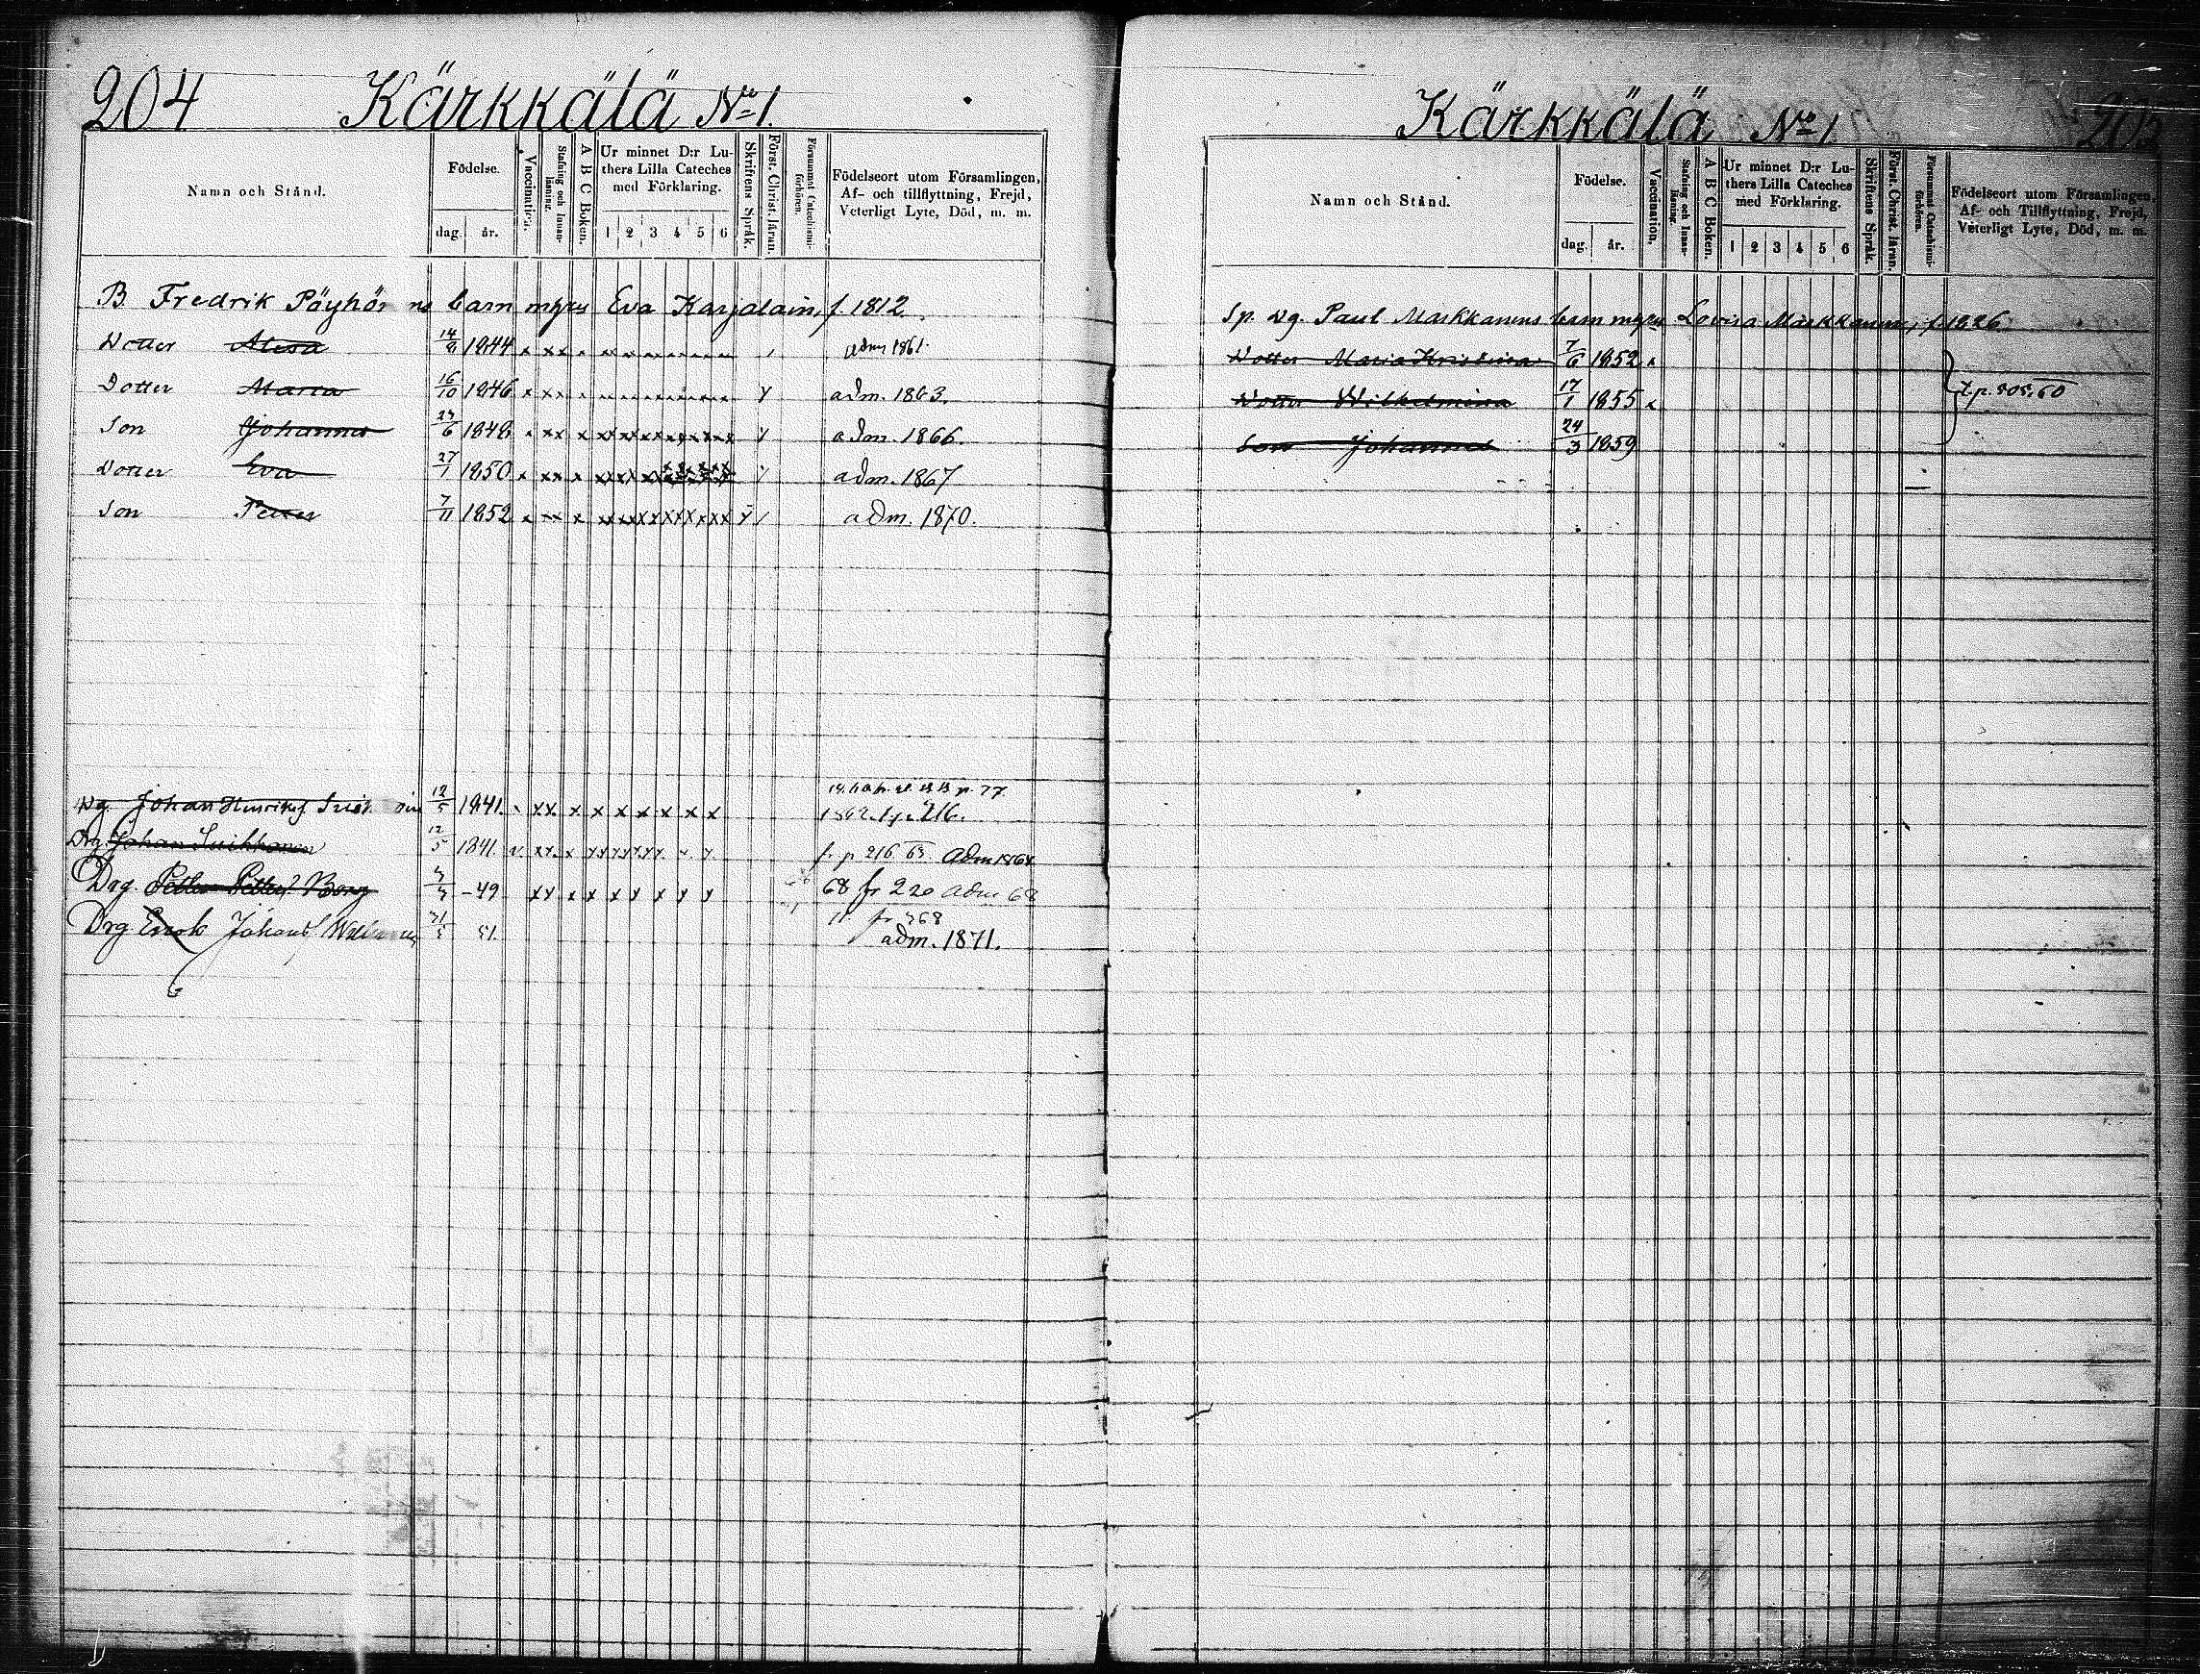 204 Kärkkälä No 1.
Namn och Stånd. Födelse. dag. år. Vaccination. Stafning och Innanläsning. A B C Boken. Ur minnet D:r Luthers Lilla Cateches med Förklaring. 1 2 3 4 5 6 Skriftens Språk. Först. Christ. läran. Försummat Catechismiförhören. Födelseort utom Församlingen, Af- och tillflyttning, Frejd, Veterligt Lyte, Död, m. m.
B. Fredrik Pöyhö ns barn Eva Karjalain, f. 1812.
Dotter 14/8 1844 x xx adm 1861.
Dotter Maria 16/10 1846 x xxx adm. 1863.
Son Johannes 24/6 1848 x xx x adm. 1866.
Dotter Eva 27/1 1850 x xx x adm. 1867
Son Petter 7/11 1852 x x adm. 1870.
Dg. Johan 12/5 1841. xx x x x x x x x 1862 216.
Drg. Johan Suikkanen 12/5 1841. f. p 216 63 adm 1864
Drg. Petter Berg –49 68 fr 220 adm 68
Drg. 31/5 51. fr 368
adm. 1871.
Kärkkälä No 1. 205
Namn och Stånd. Födelse. dag. år. Vaccination, Stafning och Innanläsning A B C Boken. Ur minnet D:r Luthers Lilla Cateches med Förklaring. 1 2 3 4 5 6 Skriftens Språk. Först. Christ. läran. Försummat Catechismiförhören. Födelseort utom Församlingen, Af- och Tillflyttning, Frejd, Veterligt Lyte, Död, m. m.
Sp. dg. Paul Markkanens barn Lovisa Markkanen, f 1826
Dotter Maria Kristina 7/6 1852 x
Dotter Wilhelmina 17/1 1855 x t.p. 505. 60
Son Johannes 24/3 1859